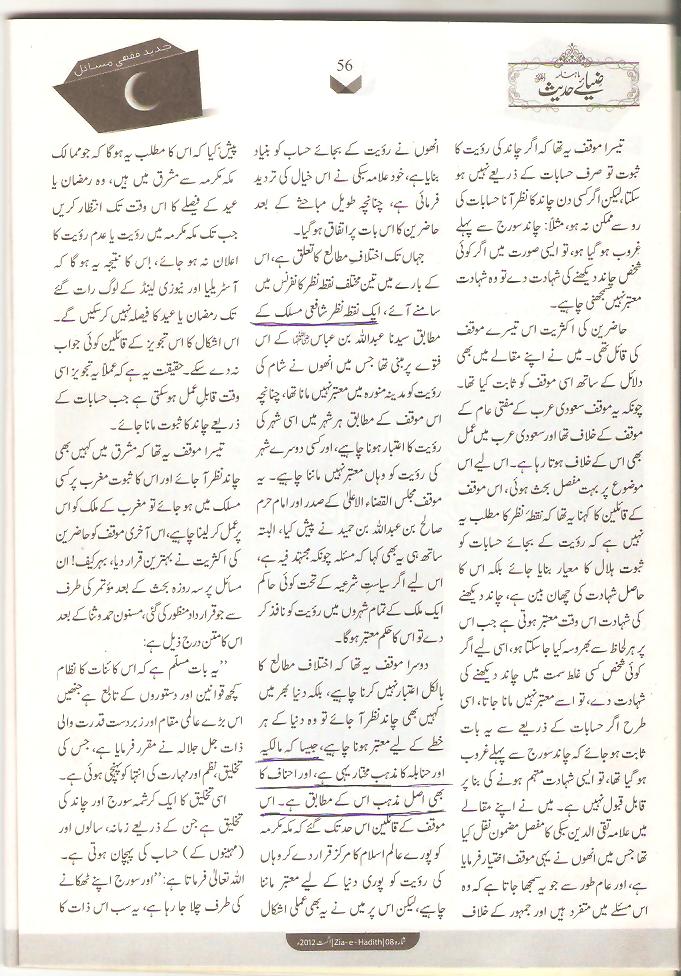 جدید فقهی مسائل
56
ماہنامہ
ضیائے حدیث
تیسرا موقف یہ تھا کہ اگر چاند کی رؤیت کا
ثبوت تو صرف حسابات کے ذریعے نہیں ہو
سکتا، لیکن اگر کسی دن چاند کا نظر آنا حسابات کی
رو سے ممکن نہ ہو، مثلاً: چاند سورج سے پہلے
غروب ہو گیا ہو، تو ایسی صورت میں اگر کوئی
شخص چاند دیکھنے کی شہادت دے تو وہ شہادت
معتبر نہیں سمجھنی چاہیے۔
حاضرین کی اکثریت اس تیسرے موقف
کی قائل تھی۔ میں نے اپنے مقالے میں بھی
دلائل کے ساتھ اسی موقف کو ثابت کیا تھا۔
چونکہ یہ موقف سعودی عرب کے مفتی عام کے
موقف کے خلاف تھا اور سعودی عرب میں عمل
بھی اس کے خلاف ہوتا رہا ہے۔ اس لیے اس
موضوع پر بہت مفصل بحث ہوئی، اس موقف
کے قائلین کا کہنا یہ تھا کہ نقطۂ نظر کا مطلب یہ
نہیں ہے کہ رؤیت کے بجائے حسابات کو
ثبوت ہلال کا معیار بنایا جائے بلکہ اس کا
حاصل شہادت کی چھان بین ہے، چاند دیکھنے
کی شہادت اس وقت معتبر ہوتی ہے جب اس
پر ہر لحاظ سے بھروسہ کیا جا سکتا ہو، اسی لیے اگر
کوئی شخص کسی غلط سمت میں چاند دیکھنے کی
شہادت دے، تو اسے معتبر نہیں مانا جاتا، اسی
طرح اگر حسابات کے ذریعے سے یہ بات
ثابت ہو جائے کہ چاند سورج سے پہلے غروب
ہو گیا تھا، تو ایسی شہادت متہم ہونے کی بنا پر
قابل قبول نہیں ہے۔ میں نے اپنے مقالے
میں علامہ تقی الدین سبکی کا مفصل مضمون نقل کیا
تھا جس میں انھوں نے یہی موقف اختیار فرمایا
ہے، اور عام طور سے جو یہ سمجھا جاتا ہے کہ وہ
اس مسئلے میں متفرد ہیں اور جمہور کے خلاف
انھوں نے رؤیت کے بجائے حساب کو بنیاد
بنایا ہے، خود علامہ سبکی نے اس خیال کی تردید
فرمائی ہے، چنانچہ طویل مباحثے کے بعد
حاضرین کا اس بات پر اتفاق ہو گیا۔
جہاں تک اختلافِ مطالع کا تعلق ہے، اس
کے بارے میں تین مختلف نقطۂ نظر کانفرنس میں
سامنے آئے، ایک نقطۂ نظر شافعی مسلک کے
مطابق سیدنا عبداللہ بن عباس کے اس
فتوے پر مبنی تھا جس میں انھوں نے شام کی
رؤیت کو مدینہ منورہ میں معتبر نہیں مانا تھا، چنانچہ
اس موقف کے مطابق ہر شہر میں اسی شہر کی
رؤیت کا اعتبار ہونا چاہیے، اور کسی دوسرے شہر
کی رؤیت کو وہاں معتبر نہیں ماننا چاہیے۔ یہ
موقف مجلس القضاء الاعلیٰ کے صدر اور امام حرم
صالح بن عبداللہ بن حمید نے پیش کیا، البتہ
ساتھ ہی یہ بھی کہا کہ مسئلہ چونکہ مجتہد فیہ ہے،
اس لیے اگر سیاستِ شرعیہ کے تحت کوئی حاکم
ایک ملک کے تمام شہروں میں رؤیت کو نافذ کر
دے تو اس کا حکم معتبر ہو گا۔
دوسرا موقف یہ تھا کہ اختلاف مطالع کا
بالکل اعتبار نہیں کرنا چاہیے، بلکہ دنیا بھر میں
کہیں بھی چاند نظر آ جائے تو وہ دنیا کے ہر
خطے کے لیے معتبر ہونا چاہیے، جیسا کہ مالکیہ
اور حنابلہ کا مذہب مختار یہی ہے، اور احناف کا
بھی اصل مذہب اس کے مطابق ہے۔ اس
موقف کے قائلین اس حد تک گئے کہ مکہ مکرمہ
کو پورے عالم اسلام کا مرکز قرار دے کر وہاں
کی رؤیت کو پوری دنیا کے لیے معتبر ماننا
چاہیے، لیکن اس پر میں نے یہ بھی عملی اشکال
پیش کیا کہ اس کا مطلب یہ ہو گا کہ جو ممالک
مکہ مکرمہ سے مشرق میں ہیں، وہ رمضان یا
عید کے فیصلے کا اس وقت تک انتظار کریں
جب تک مکہ مکرمہ میں رؤیت یا عدم رؤیت کا
اعلان نہ ہو جائے، اس کا نتیجہ یہ ہو گا کہ
آسٹریلیا اور نیوزی لینڈ کے لوگ رات گئے
تک رمضان یا عید کا فیصلہ نہیں کر سکیں گے۔
اس اشکال کا اس تجویز کے قائلین کوئی جواب
نہ دے سکے۔ حقیقت یہ ہے کہ عملاً یہ تجویز اسی
وقت قابلِ عمل ہو سکتی ہے جب حسابات کے
ذریعے چاند کا ثبوت مانا جائے۔
تیسرا موقف یہ تھا کہ مشرق میں کہیں بھی
چاند نظر آ جائے اور اس کا ثبوت مغرب پر کسی
مسلک میں ہو جائے تو مغرب کے ملک کو اس
پر عمل کر لینا چاہیے، اس آخری موقف کو حاضرین
کی اکثریت نے بہترین قرار دیا، بہر کیف! ان
مسائل پر سہ روزہ بحث کے بعد مؤتمر کی طرف
سے جو قرارداد منظور کی گئی، مسنون حمد و ثنا کے بعد
اس کا متن درج ذیل ہے:
”یہ بات مسلم ہے کہ اس کائنات کا نظام
کچھ قوانین اور دستوروں کے تابع ہے جنھیں
اس بڑے عالمی مقام اور زبردست قدرت والی
ذات جل جلالہ نے مقرر فرمایا ہے، جس کی
تخلیق، نظم اور مہارت کی انتہا کو پہنچی ہوئی ہے۔
اسی تخلیق کا ایک کرشمہ سورج اور چاند کی
تخلیق ہے جن کے ذریعے زمانہ، سالوں اور
(مہینوں کے) حساب کی پہچان ہوتی ہے۔
اللہ تعالیٰ فرماتا ہے: ”اور سورج اپنے ٹھکانے
کی طرف چلا جا رہا ہے، یہ سب اس ذات کا
شمارہ 08 | Zia-e-Hadith | اگست 2012ء